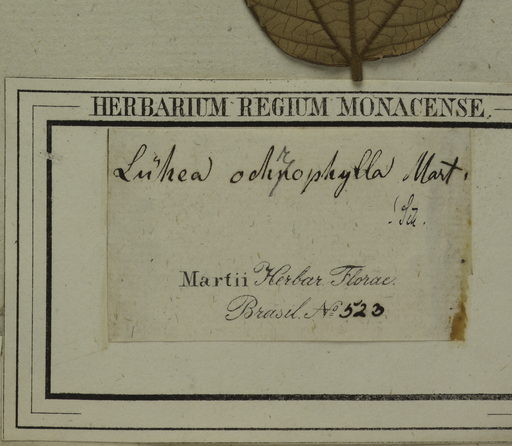 HERBARIUM REGIUM MONACENSE.
Lühea ochrophylla Mart.
Martii Herbar. Florae
Brasil. No 523